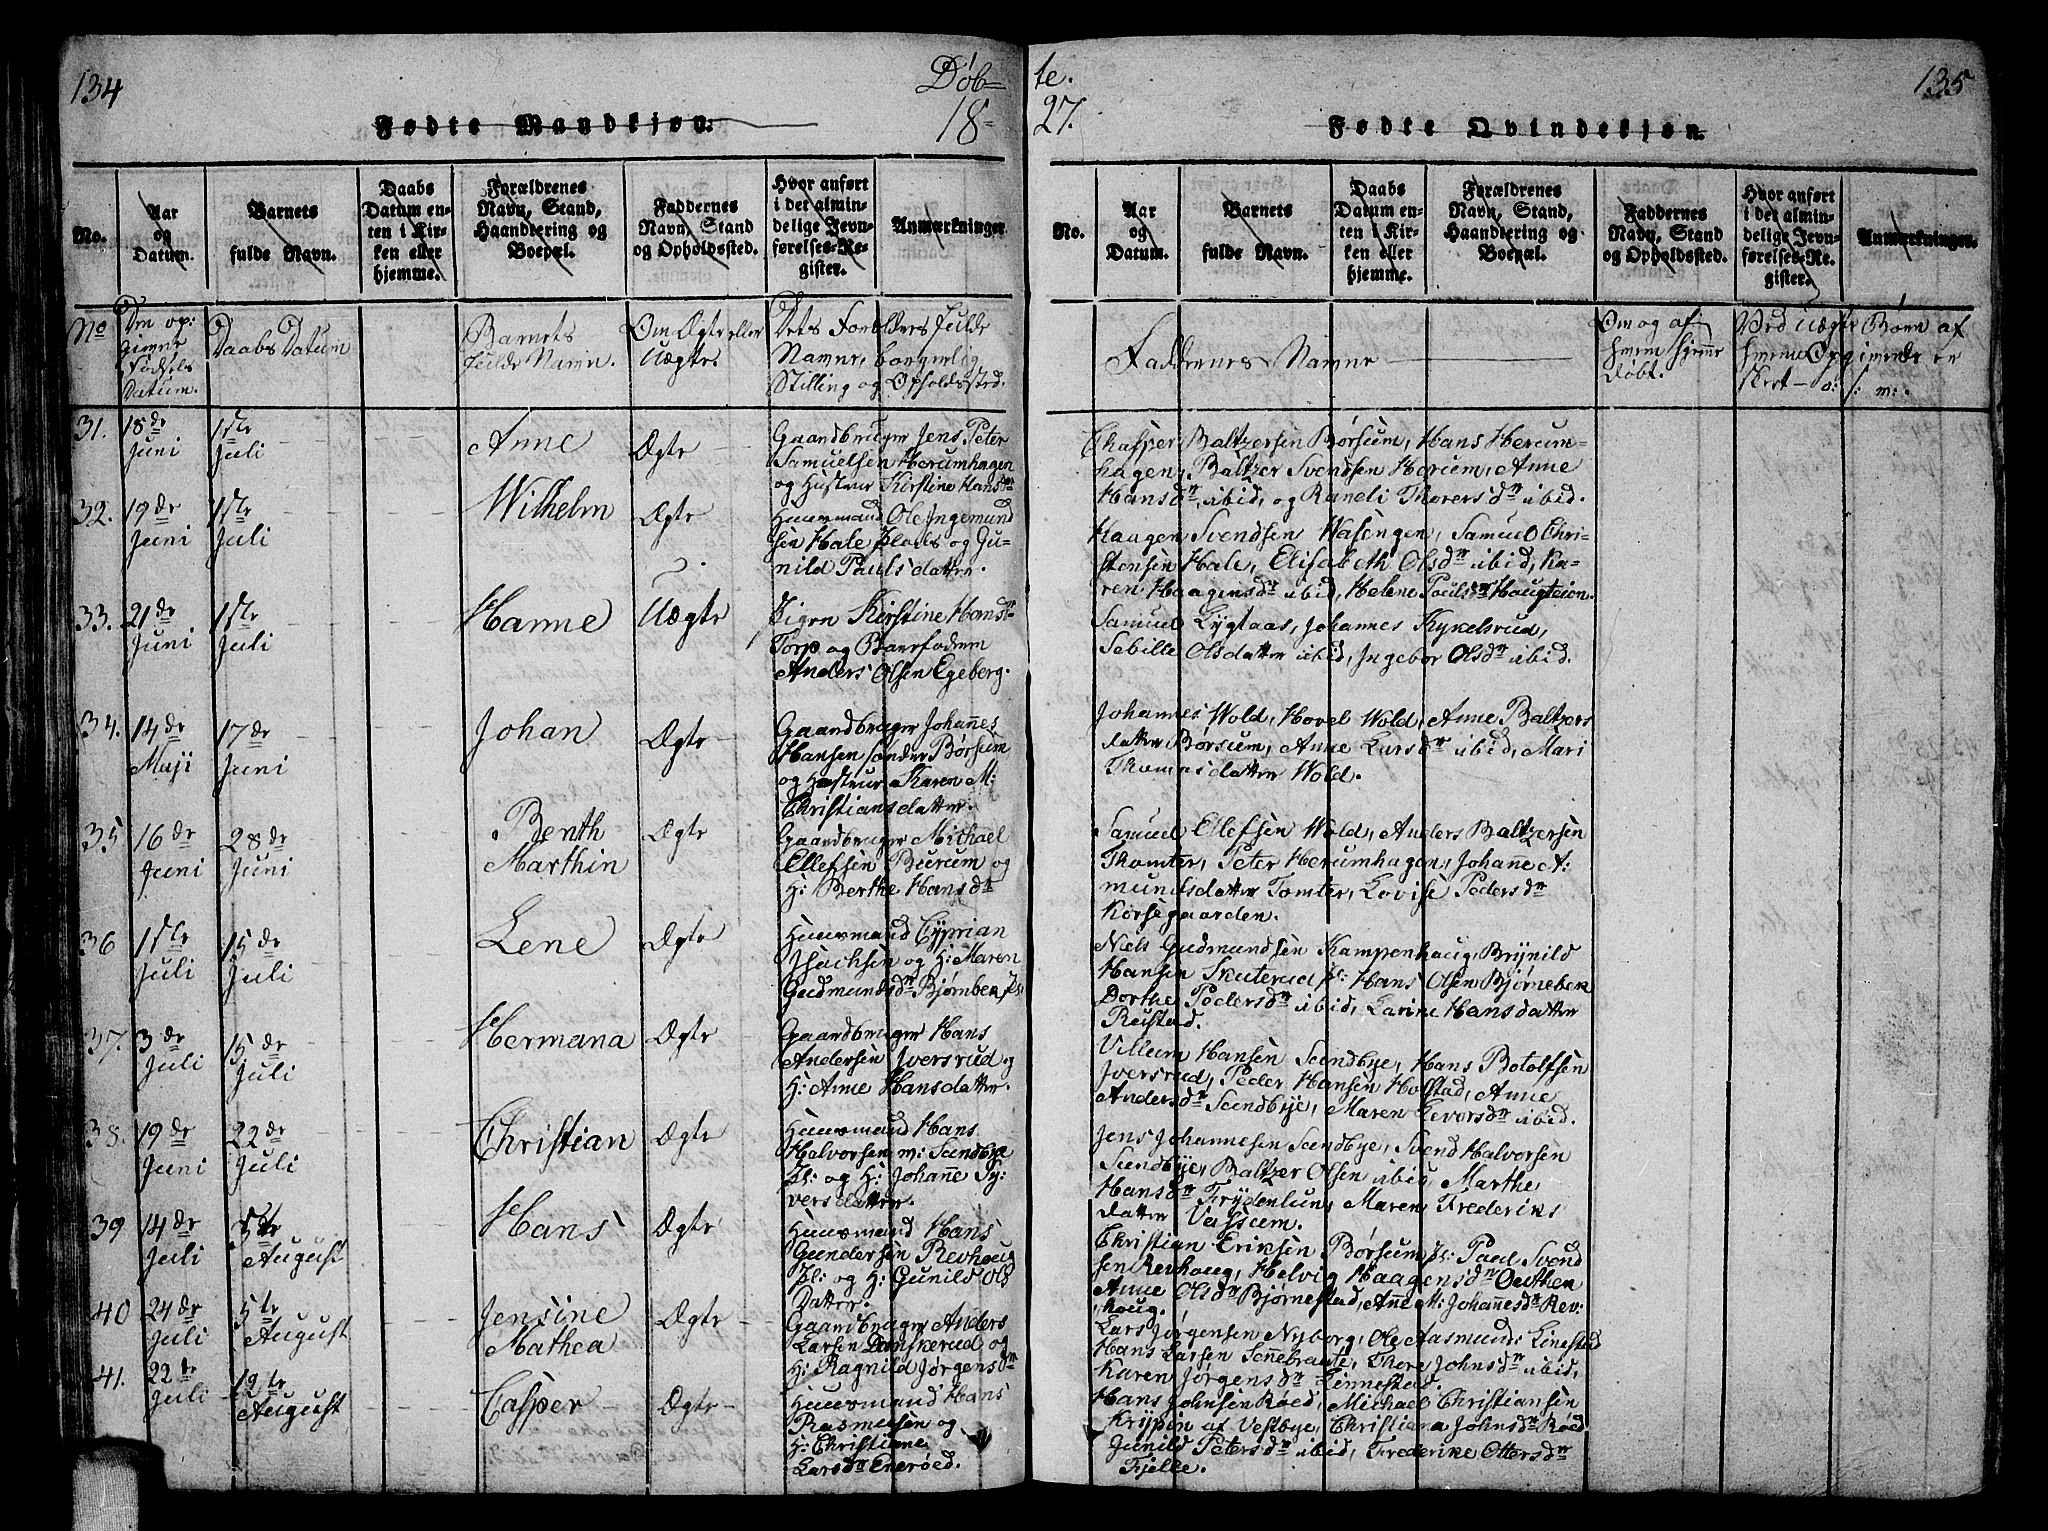 134
Døb=
te.
135
Fødte Mandkjøn.
18=
27.
Fødte Qvindekjøn.
No.
Aar
og
Datum.
Barnets
fulde Navn.
Daabs
Datum en-
ten i Kir-
ken eller
hjemme.
Forældrenes
Navn, Stand,
Haandtering og
Boepæl.
Faddernes
Navn, Stand
og Opholdssted.
Hvor anført
i det almin-
delige Jevn-
førelses-Re-
gister.
Anmærkninger.
No.
Aar
og
Datum.
Barnets
fulde Navn.
Daabs
Datum en-
ten i Kir-
ken eller
hjemme.
Forældrenes
Navn, Stand,
Haandtering og
Boepæl.
Faddernes
Navn, Stand
og Opholdssted.
Hvor anført
i det almin-
delige Jevn-
førelses-Re-
gister.
Anmærkninger.
No
Den op:
givne
Fødsels
Datum.
Daabs Datum
Barnets
fulde Navn.
Om Ægte eller
Uægte.
Dets Forældres fulde
Navne, borgerlig
Stilling og Opholdssted.
Faddernes Navne
Om og af
hvem hjemme
døbt.
Ved uægte Børn af
hvem Opgivende er
skeet
31.
18de
Juni
1ste
Juli
Anne
Ægte
Gaardbruger Jens Peter
Samuelsen Herumhagen
og Hustrue Kirstine Hansdr
Chasper Baltzersen Børsum, Hans Herum-
hagen, Baltzer Svendsen Herum, Anne
Hansdr ibid, og Randi Thoversdr ibid.
32.
19de
Juni
1ste
Juli
Wilhelm
Ægte
Huusmand Ole Ingemund
sen Hale Plads og Gu-
nild Paulsdatter.
Haagen Svendsen Wasengen, Samuel Chri-
stensen Hale, Elisabeth Olsdr ibid, Ka-
ren Haagensdr ibid, Helene Poulsdr Haugteien.
33.
21de
Juni
1ste
Juli
Hanne
Uægte
Pigen Kirstine Hansdr
Torp og Barnfaderen
Anders Olsen Egeberg.
Samuel Lygtaas, Johannes Kykelsrud,
Sebille Olsdatter ibid, Ingebor Olsdr ibid.
34.
14de
Maji
17de
Juni
Johan
Ægte
Gaardbruger Johañes
Hansen søndre Børsum
og Hustrue Karen M:
Christiansdatter.
Johannes Wold, Hovel Wold, Anne Baltzers
datter Børsum, Anne Larsdr ibid, Mari
Thomasdatter Wold.
35
16de
Juni
28de
Juni
Benth
Marthin
Ægte
Gaardbruger Michael
Ellefsen Burum og
H: Berthe Hansdr
Samuel Ellefsen Wold, Anders Baltzersen
Thomter, Peter Herumhagen, Johañe A:
mundsdatter Tomter, Lovise Pedersdr
Korsegaarden.
36
1ste
Juli
15de
Juli
Lene
Ægte
Huusmand Cyprian
Isachsen og H: Maren
Gudmundsdr Bjørnbek Pl:
Niels Gudmundsen Kampenhaug, Brynild
Hansen Skuterud pl: Hans Olsen Bjørnebek
Dorthe Pedersdr ibid, Karine Hansdatter
Rustad.
37.
3de
Juli
15de
Juli
Hermana
Ægte
Gaardbruger Hans
Andersen Iversrud og
H: Anne Hansdatter.
Villum Hansen Sundbye, Hans Botolfsen
Iversrud, Peder Hansen Holstad, Anne
Andersdr Sundbye, Maren Eversdr ibid.
38.
19de
Juni
22de
Juli
Christian
Ægte
Huusmand Hans
Halvorsen m: Sundbye
Pl: og H: Johañe Sy:
versdatter.
Jens Johannesen Sundbye, Svend Halvorsen
Sundbye, Baltzer Olsen ibid, Marthe
Hansdr Frydenlund, Maren Frederiks
datter Vassum.
39
14de
Juli
5te
August
Hans
Ægte
Huusmand Hans
Gundersen Revhaug
Pl: og H: Gunild Ols
Datter.
Christian Eriksen Børsum pl: Poul Svend
sen Revhaug, Helvig Haagensdr Outhen
Anne Olsdr Bjørnestad, Añe M: Johañesdr Rev:
haug.
40
24de
Juli
5te
August
Jensine
Mathea
Ægte
Gaardbruger Anders
Larsen Danskerud og
H: Ragnild Jørgensdr
Lars Jørgensen Nyborg, Ole Aasmund: Linestad
Hans Larsen Señebraate, Thore Johnsdr ibid,
Karen Jørgensdr Linnestad.
41.
22de
Juli
12te
August
Casper
Ægte
Huusmand Hans
Rasmusen og
H: Christiane
Larsdr Enerøed.
Hans Johnsen Røed, Michael Christiansen
Krypin af Vestbye, Christiana Johnsdr Røed
Gunild Petersdr ibid, Frederike Ottersdr
Fjelle.